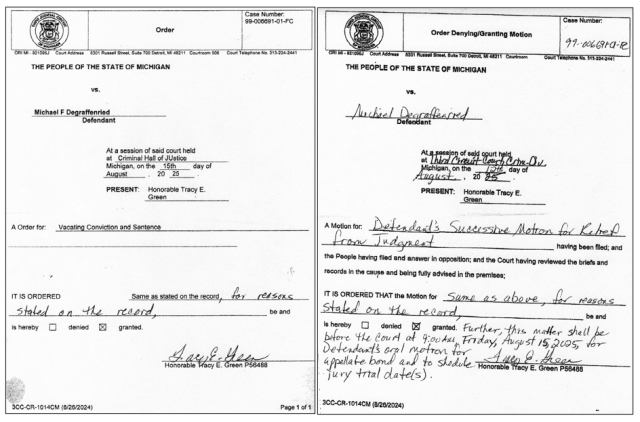 Order
Case Number:
99-006691-01-FC
ORI MI - 821095J Court Address 5301 Russell Street, Suite 700 Detroit, MI 48211 Courtroom 506 Court Telephone No. 313-224-2441
THE PEOPLE OF THE STATE OF MICHIGAN
vs.
Michael F Degraffenried
Defendant
At a session of said court held
at Criminal Hall of JUstice
Michigan, on the 15th day of
August , 20 25 .
PRESENT: Honorable Tracy E.
Green
A Order for: Vacating Conviction and Sentence
IT IS ORDERED Same as stated on the record, for reasons
stated on the record, be and
is hereby ☐ denied ☒ granted.
Tracy E. Green
Honorable Tracy E. Green P56488
3CC-CR-1014CM (8/26/2024) Page 1 of 1
Order Denying/Granting Motion
Case Number:
99-006691-01-FC
Court Address 5301 Russell Street, Suite 700 Detroit, MI 48211 Courtroom Court Telephone No. 313-224-2441
THE PEOPLE OF THE STATE OF MICHIGAN
vs.
Michael Degraffenried
Defendant
At a session of said court held
at Third Circuit Court, Crim. Div.
Michigan, on the 12th day of
August , 20 25 .
PRESENT: Honorable Tracy E.
Green
A Motion for: Defendant's Successive Motion for Relief
from Judgment having been filed; and
the People having filed and answer in opposition; and the Court having reviewed the briefs and
records in the cause and being fully advised in the premises;
IT IS ORDERED THAT the Motion for Same as above, for reasons
stated on the record, be and
is hereby ☐ denied ☒ granted. Further, this matter shall be
before the court at 9:00 am, Friday, August 15, 2025, for
Defendant's oral motion for
appellate bond and to shedule
jury trial date(s).
Tracy E. Green
Honorable Tracy E. Green P56488
3CC-CR-1014CM (8/26/2024)